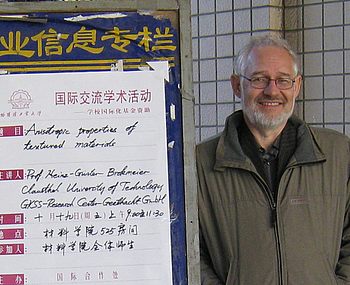 业信息专栏
国际交流学术活动
——学校国际化基金资助
题 目 Anisotropic properties of
textured materials
主讲人 Prof Heinz-Günter Brokmeier
Clausthal University of Technology,
GKSS-Research Center Geesthacht GmbH
间 十月十九日(周三)上午9:00至11:30
地点 材料学院 525 房间
参加人 材料学院全体师生
主办 国际合作处